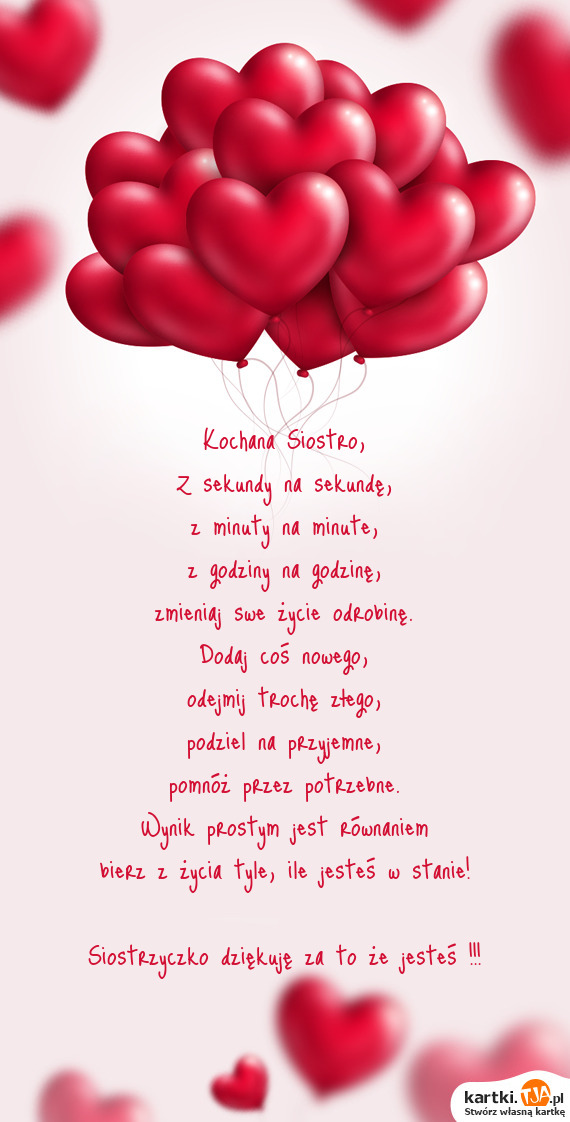 Kochana Siostro,
Z sekundy na sekundę,
z minuty na minute,
z godziny na godzinę,
zmieniaj swe życie odrobinę.
Dodaj coś nowego,
odejmij trochę złego,
podziel na przyjemne,
pomnóż przez potrzebne.
Wynik prostym jest równaniem
bierz z życia tyle, ile jesteś w stanie!
Siostrzyczko dziękuję za to że jesteś !!!
kartki.TJA.pl
Stwórz własną kartkę